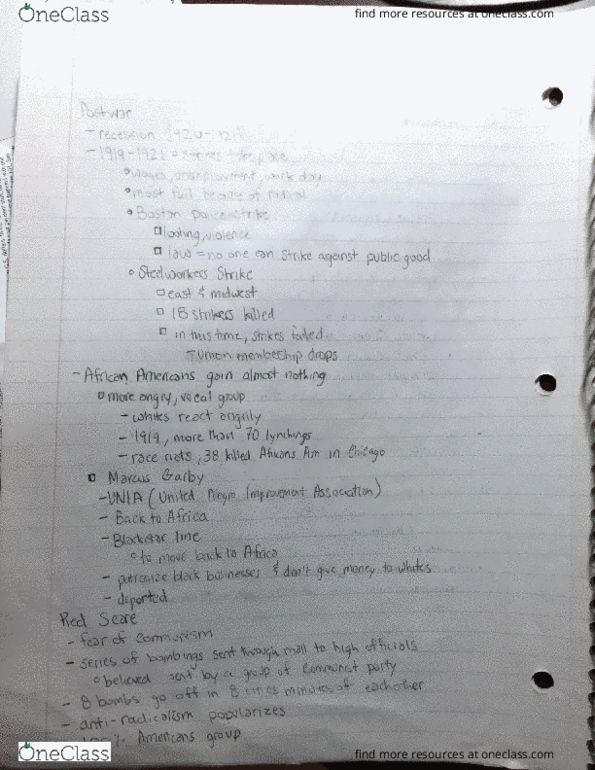 OneClass
find more resources at oneclass.com
Postwar
- recession 1920-1921
- 1919-1921 take place
wages, unemployment, work day
most fail because of radical
Boston police strike
looting, violence
law = no one can strike against public good
Steelworkers Strike
east & midwest
18 strikers killed
in this time, strikes failed
Union membership drops
- African Americans gain almost nothing
more angry, vocal group
- whites react angrily
- 1919, more than 70 lynchings
- race riots, 38 killed Africans Am in Chicago
Marcus Garby
- UNIA (United Negro Improvement Association)
- Back to Africa
- Blackstar line
to move back to Africa
- patronize black businesses & don't give money to whites
- deported
Red Scare
- fear of communism
- series of bombings sent through mail to high officials
believed sent by a group of Communist party
- 8 bombs go off in 8 cities minutes of eachother
- anti-radicalism popularizes
100% Americans group
OneClass
find more resources at oneclass.com